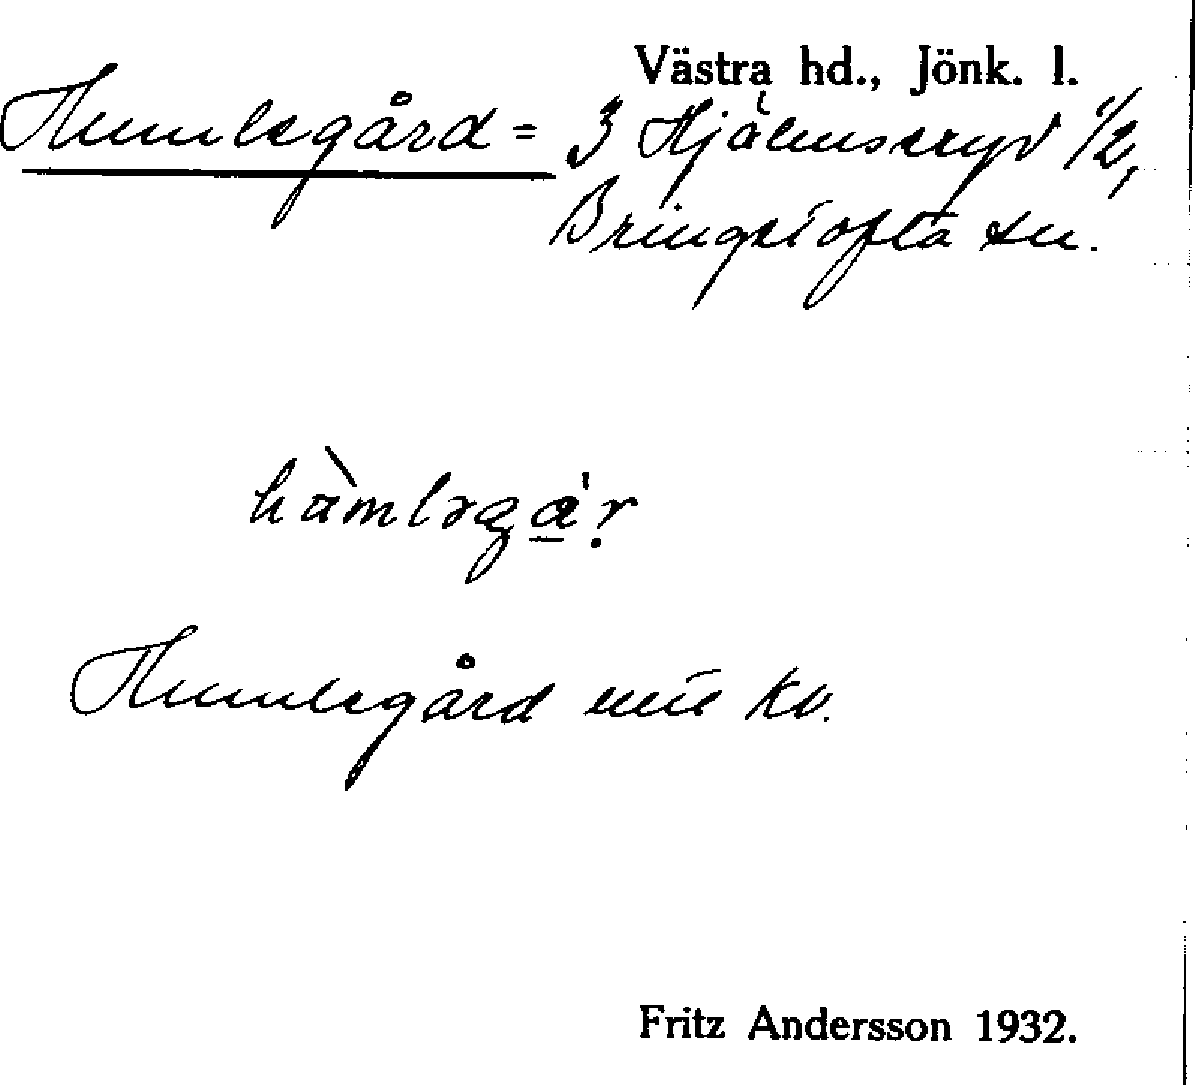 Västra hd., Jönk. l.
Humlegård = 3 Hjälmseryd 1/2,
Bringetofta sn.
Humlegård
Fritz Andersson 1932.